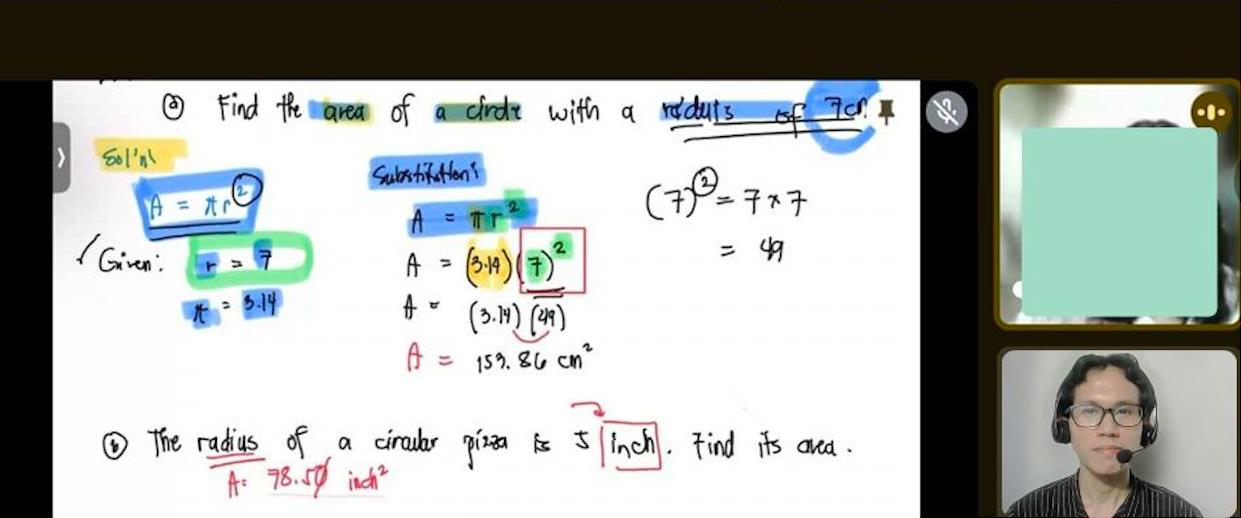 ⓐ Find the area of a circle with a raduis of 7cm
Sol'n:
A = πr²
Given: r = 7
π = 3.14
Substitution:
A = πr²
A = (3.14)(7)²
A = (3.14)(49)
A = 153.86 cm²
(7)² = 7 x 7
= 49
ⓑ The radius of a circular pizza is 5 inch. Find its area.
A: 78.50 inch²